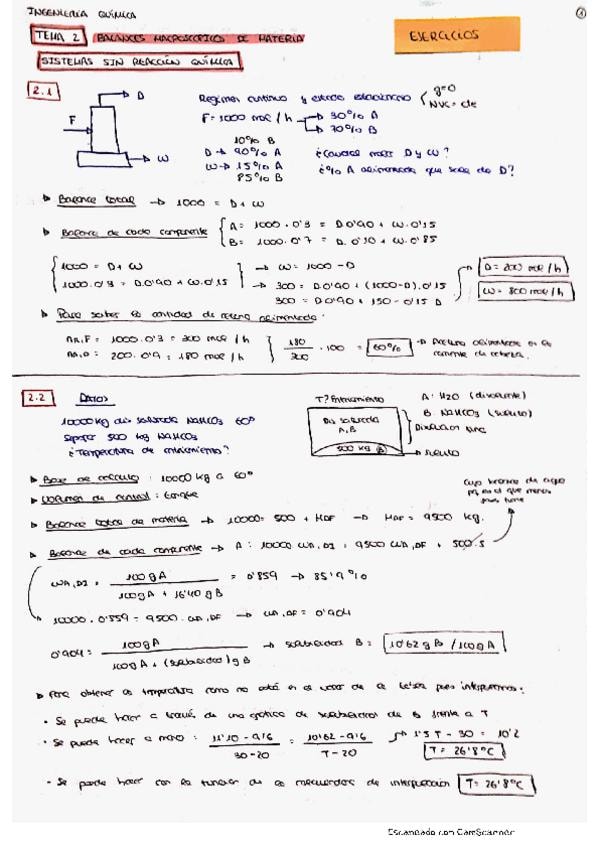 INGENIERÍA QUÍMICA
①
TEMA 2 BALANCES MACROSCÓPICOS DE MATERIA
EJERCICIOS
SISTEMAS SIN REACCIÓN QUÍMICA
2.1
D
F
W
Régimen continuo y estado estacionario
F = 1000 mol/h
30% A
70% B
10% B
D → 90% A
W → 15% A
85% B
¿Caudal molar D y W?
¿% A alimentado que sale de D?
Balance total → 1000 = D + W
Balance de cada componente
A = 1000 · 0'3 = D·0'90 + W·0'15
B = 1000 · 0'7 = D·0'10 + W·0'85
1000 = D + W → W = 1000 - D
1000·0'3 = D·0'90 + W·0'15 → 300 = D·0'90 + (1000-D)·0'15
300 = D·0'90 + 150 - 0'15 D
D = 200 mol/h
W = 800 mol/h
Para saber la cantidad de alimentada:
1000·0'3 = 300 mol/h
200·0'9 = 180 mol/h
180/300 · 100 = 60%
2.2 Datos
10000 kg dis saturada NaHCO3 60º
separar 500 kg NaHCO3
¿Temperatura de enfriamiento?
T? Enfriamiento
Dis saturada
A, B
500 kg B
A: H2O (disolvente)
B: NaHCO3 (soluto)
soluto
Base de cálculo: 10000 kg a 60º
Volumen de control: tanque
Balance total de materia → 10000 = 500 + MDF → MDF = 9500 kg.
Balance de cada componente → A: 10000 WA,DI = 9500 WA,DF + 500·
WA,DI = 100 g A / 100 g A + 16'40 g B = 0'859 → 85'9%
10000·0'859 = 9500·WA,DF → WA,DF = 0'904
0'904 = 100 g A / 100 g A + (solubilidad) g B → solubilidad B = 10'62 g B / 100 g A
Para obtener la temperatura como no está en la tabla pues interpolamos:
· Se puede hacer a través de una gráfica de solubilidad de B frente a T
· Se puede hacer a mano: 11'10 - 9'6 / 30-20 = 10'62 - 9'6 / T-20 → 1'5 T - 30 = 10'2
T = 26'8ºC
· Se puede hacer con la función de la calculadora de interpolación T = 26'8ºC
Escaneado con CamScanner